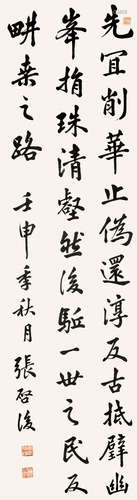 先宜削華止偽還淳反古抵璧幽
峯捐珠清壑然後驅一世之民反
畊桑之路 壬申季秋月 張啓後